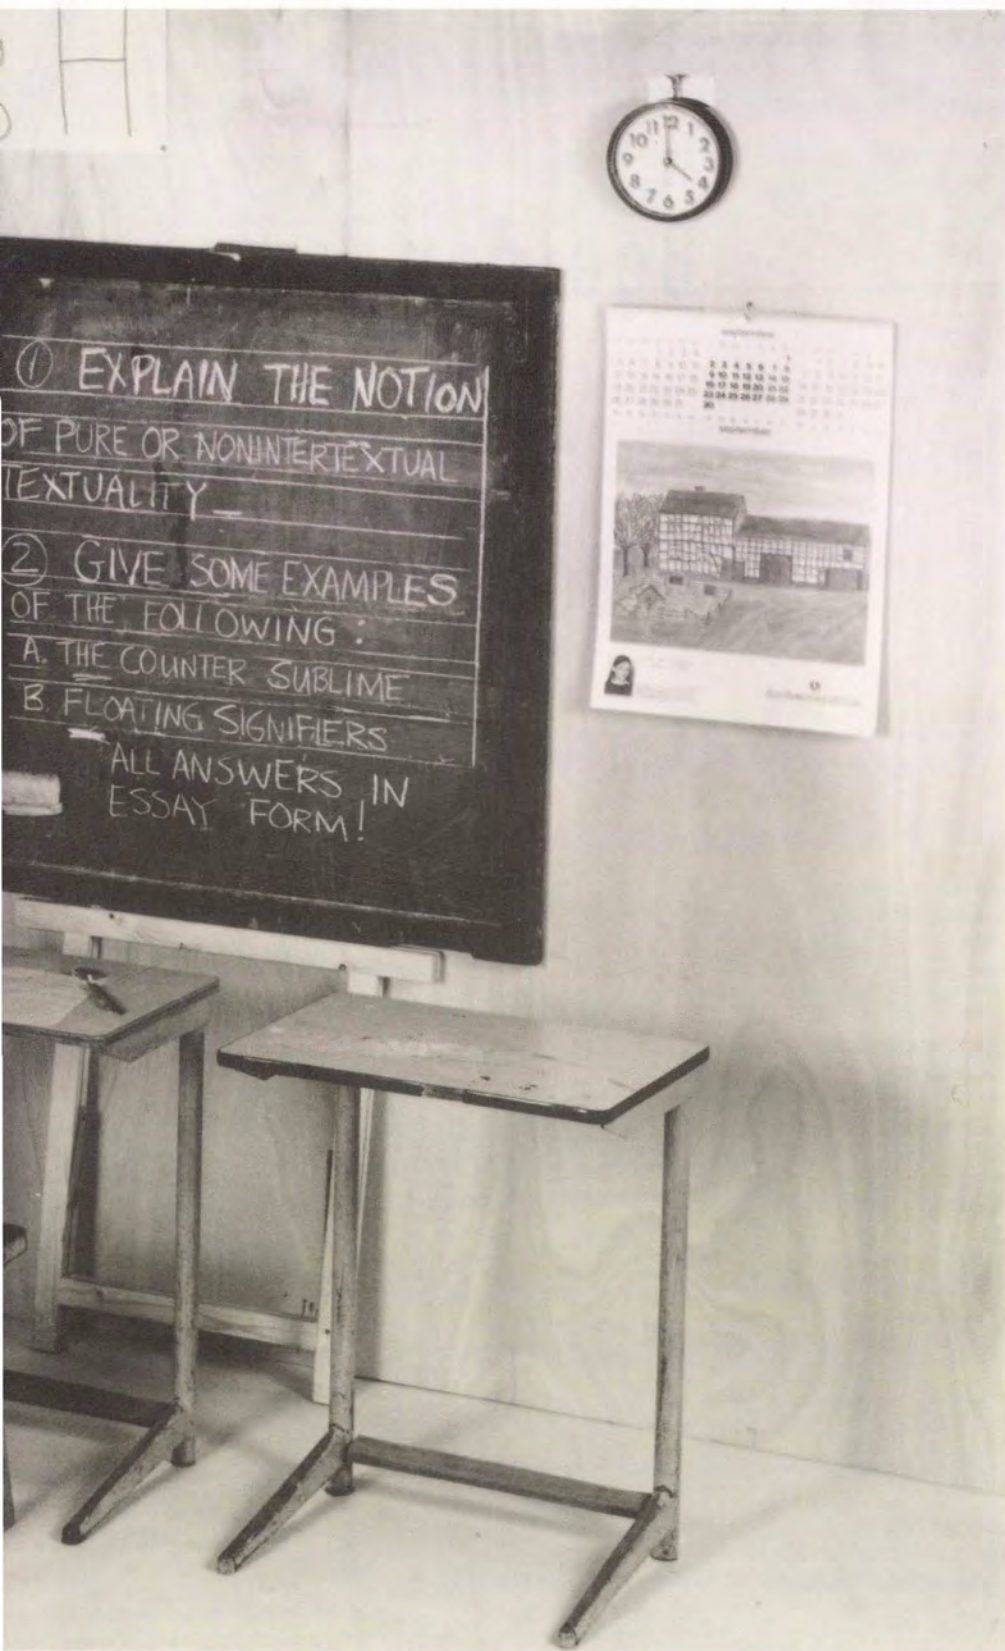 H
12
11 1
10 2
9 3
8 4
7 5
6
① EXPLAIN THE NOTION
OF PURE OR NONINTERTEXTUAL
TEXTUALITY _
② GIVE SOME EXAMPLES
OF THE FOLLOWING :
A. THE COUNTER SUBLIME
B. FLOATING SIGNIFIERS
ALL ANSWERS IN
ESSAY FORM!
septembre
1
2 3 4 5 6 7 8
9 10 11 12 13 14 15
16 17 18 19 20 21 22
23 24 25 26 27 28 29
30
september